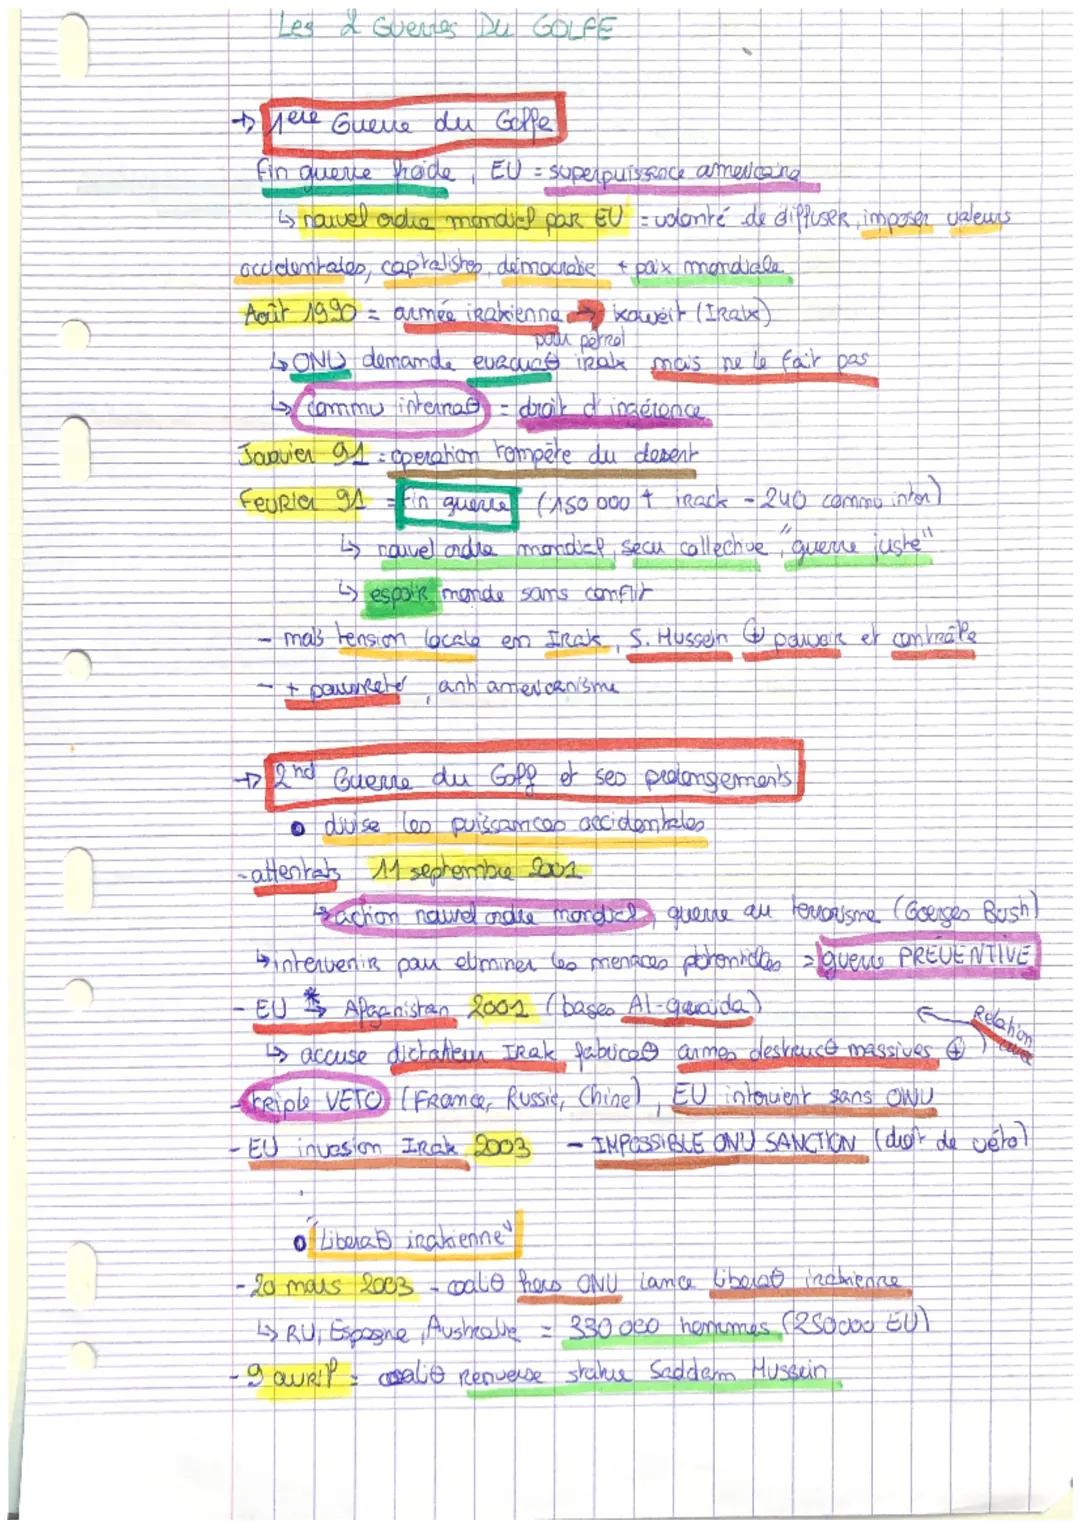 Les 2 Guerres Du GOLFE
→ 1ère Guerre du Golfe
fin guerre froide, EU = superpuissance americaine
↳ nouvel ordre mondial par EU = volonté de diffuser, imposer valeurs
occidentales, capitalistes, démocratie + paix mondiale
Août 1990 = armée irakienne → koweit (Irak)
pour pétrol
↳ ONU demande evacuaθ irak mais ne le fait pas
↳ commu internaθ = droit d'ingérence
Janvier 91 = operation tempête du desert
Fevrier 91 = fin guerre (150 000 + irack - 240 commu inter)
↳ nouvel ordre mondial, secu collective, "guerre juste"
↳ espoir monde sans conflit
- mais tension locale en Irak, S. Hussein ⊕ pouvoir et contrôle
- + pauvreté, anti americanisme
→ 2nd Guerre du Golf et ses prolongements
• divise les puissances occidentales
- attentats 11 septembre 2001
↳ action nouvel ordre mondial, guerre au terrorisme (Goerges Bush)
↳ intervenir pour eliminer les menaces potentielles = guerre PREVENTIVE
- EU * → Afganistan 2001 (bases Al-quaida)
Relation
↳ accuse dictatteur Irak fabricaθ armes destrucθ massives ⊕
- triple VETO (France, Russie, Chine), EU intervient sans ONU
- EU invasion Irak 2003 - IMPOSSIBLE ONU SANCTION (droit de véto)
• "Liberaθ irakienne"
- 20 mars 2003 - coaliθ hors ONU lance liberaθ irakienne
↳ RU, Espagne, Australie = 330 000 hommes (250000 EU)
- 9 avril = coaliθ renverse statue Saddam Hussein